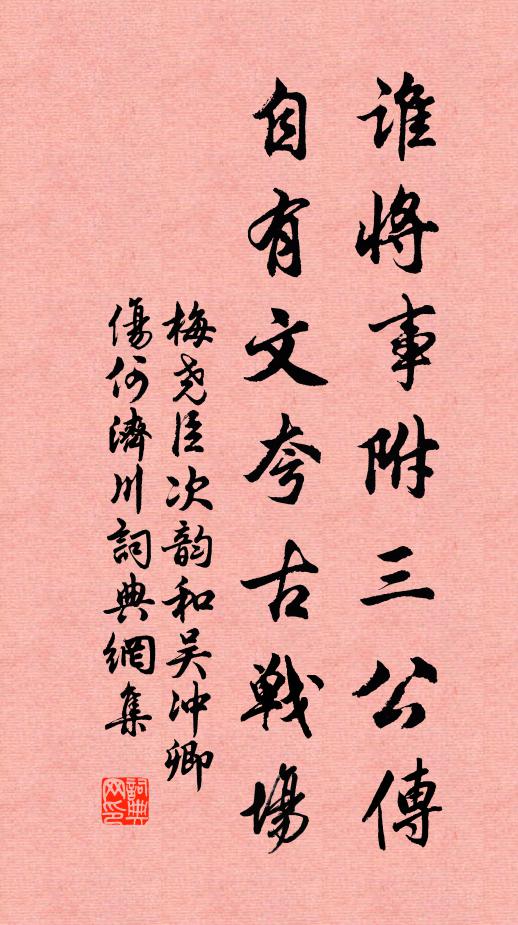 誰將事附三公傳
自有文夸古戰場
梅堯臣次韵和吴冲卿
傷何濟川詞典網集
詞典网印